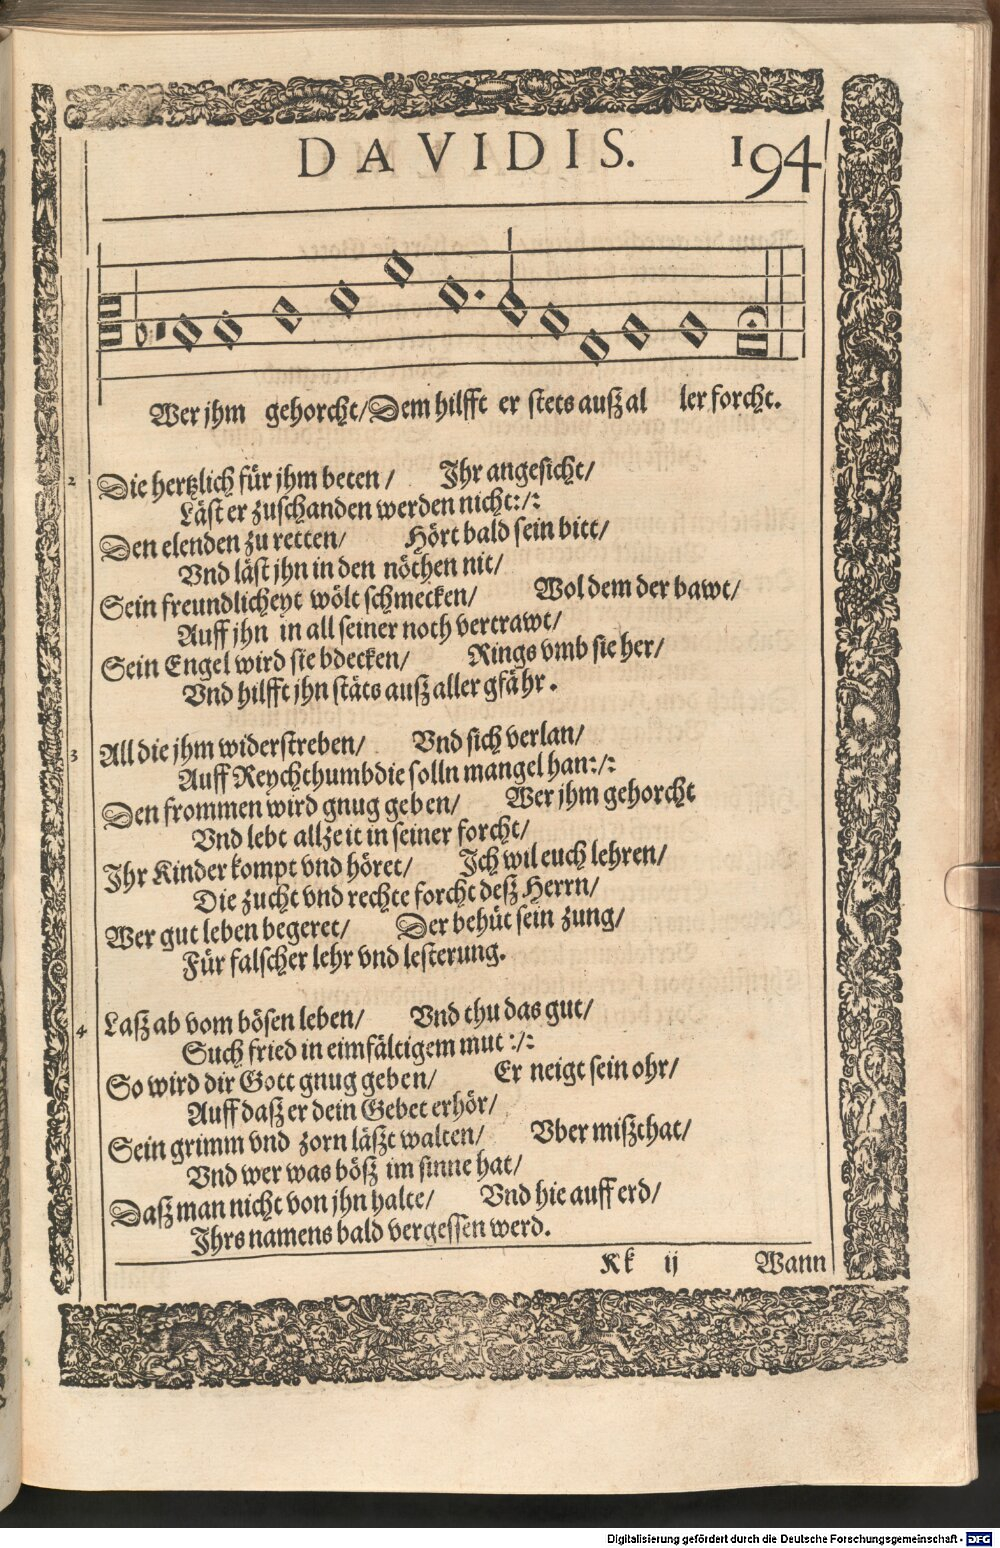 DAVIDIS. 194
Wer jhm gehorcht/ Dem hilfft er stets auß al ler forcht.
2 Die hertzlich für jhm beten / Ihr angesicht/
Läst er zuschanden werden nicht:/:
Den elenden zu retten/ Hört bald sein bitt/
Vnd läst jhn in den nöthen nit/
Sein freundlicheyt wölt schmecken/ Wol dem der bawt/
Auff jhn in all seiner noth vertrawt/
Sein Engel wird sie bdecken/ Rings vmb sie her/
Vnd hilfft jhn stäts auß aller gfähr.
3 All die jhm widerstreben/ Vnd sich verlan/
Auff Reychthumb die solln mangel han:/:
Den frommen wird gnug geben/ Wer jhm gehorcht
Vnd lebt allzeit in seiner forcht/
Ihr Kinder kompt vnd höret/ Ich wil euch lehren/
Die zucht vnd rechte forcht deß Herrn/
Wer gut leben begeret/ Der behüt sein zung/
Für falscher lehr vnd lesterung.
4 Laß ab vom bösen leben/ Vnd thu das gut/
Such fried in eimfältigem mut :/:
So wird dir Gott gnug geben/ Er neigt sein ohr/
Auff daß er dein Gebet erhör/
Sein grimm vnd zorn läßt walten/ Vber mißthat/
Vnd wer was böß im sinne hat/
Daß man nicht von jhn halte/ Vnd hie auff erd/
Ihrs namens bald vergessen werd.
Kk ij Wann
Digitalisierung gefördert durch die Deutsche Forschungsgemeinschaft - DFG